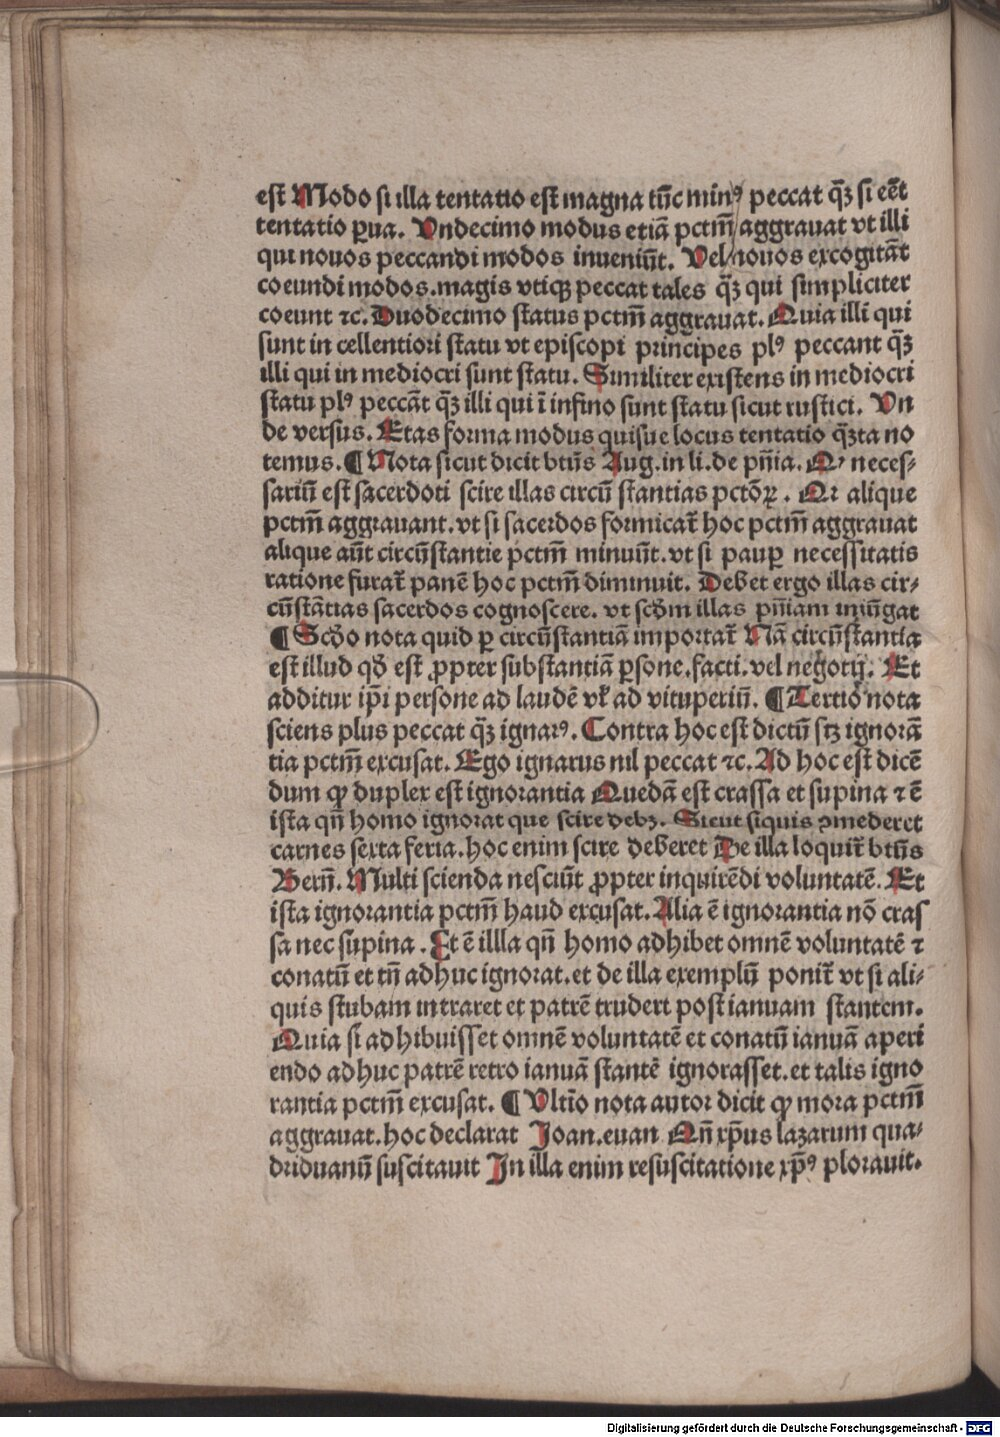 est Modo si illa tentatio est magna tūc minꝰ peccat q̄ꝫ si eēt
tentatio ꝑua. Vndecimo modus etiā pctm̄ aggrauat vt illi
qui nouos peccandi modos inueniūt. Vel nouos excogitāt
coeundi modos.magis vtiqꝫ peccat tales q̄ꝫ qui simpliciter
coeunt ⁊c. Duodecimo status pctm̄ aggrauat. Quia illi qui
sunt in cellentiori statu vt episcopi principes plꝰ peccant q̄ꝫ
illi qui in mediocri sunt statu. Similiter existens in mediocri
statu plꝰ peccāt q̄ꝫ illi qui ī infino sunt statu sicut rustici. Vn
de versus. Etas forma modus quisue locus tentatio q̄ꝫta no
temus. ¶ Nota sicut dicit btūs Aug.in li.de pn̄ia. Qꝛ neces⸗
sariū est sacerdoti scire illas circū stantias pctōꝝ. Qꝛ alique
pctm̄ aggrauant.vt si sacerdos fornicat̄ hoc pctm̄ aggrauat
alique aūt circūstantie pctm̄ minuūt.vt si pauꝑ necessitatis
ratione furat̄ panē hoc pctm̄ diminuit. Debet ergo illas cir⸗
cūstātias sacerdos cognoscere. vt scdm̄ illas pn̄iam iniūgat
¶ Scdo nota quid ꝑ circūstantiā importat̄ Nā circūstantia
est illud qd̄ est ꝓpter substantiā ꝑsone.facti.vel negotij. Et
additur ip̄i persone ad laudē vł ad vituperiū. ¶ Tertio nota
sciens plus peccat q̄ꝫ ignarꝰ. Contra hoc est dictū sꝫ ignorā
tia pctm̄ excusat. Ego ignarus nil peccat ⁊c. Ad hoc est dicē
dum ꝙ duplex est ignorantia Quedā est crassa et supina ⁊ ē
ista qn̄ homo ignorat que scire debꝫ. Sicut siquis ꝯmederet
carnes sexta feria.hoc enim scire deberet De illa loquit̄ btūs
Bern̄. Multi scienda nesciūt ꝓpter inquirēdi voluntatē. Et
ista ignorantia pctm̄ haud excusat. Alia ē ignorantia nō cras
sa nec supina. Et ē illla qn̄ homo adhibet omnē voluntatē ⁊
conatū et tn̄ adhuc ignorat.et de illa exemplū ponit̄ vt si ali⸗
quis stubam intraret et patrē trudert post ianuam stantem.
Quia si adhibuisset omnē voluntatē et conatū ianuā aperi
endo adhuc patrē retro ianuā stantē ignorasset.et talis igno
rantia pctm̄ excusat. ¶ Vltīo nota autor dicit ꝙ mora pctm̄
aggrauat.hoc declarat Joan.euan Qn̄ xp̄us lazarum qua⸗
driduanū suscitauit In illa enim resuscitatione xp̄ꝰ plorauit.
Digitalisierung gefördert durch die Deutsche Forschungsgemeinschaft - DFG